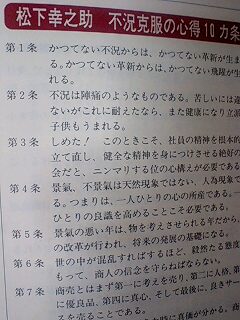 松下幸之助 不況克服の心得10カ条
第1条 かつてない不況からは、かつてない革新が生ま
る。かつてない革新からは、かつてない飛躍が生
れる。
第2条 不況は陣痛のようなものである。苦しいには違
ないがこれに耐えたなら、また健康になり立派
子供もうまれる。
第3条 しめた! このときこそ、社員の精神を根本的
立て直し、健全な精神を身につけさせる絶好の
会だと、ニンマリする位の心構えが必要である
第4条 景気、不景気は天然現象ではない、人為現象で
る。つまりは、一人ひとりの心の所産である。一
ひとりの良識を高めることこそ必要である。
第5条 景気の悪い年は、物を考えさせられる年だから、
の改革が行われ、将来の発展の基礎になる。
第6条 世の中が混乱すればするほど、毅然たる態度
もって、商人の信念を守らねばならない。
第7条 商売とはまず第一に考えを売り、第二に人格、第
に優良品、第四に真心、そして最後に、良きサー
スを売ることである。
真価が分かる。商